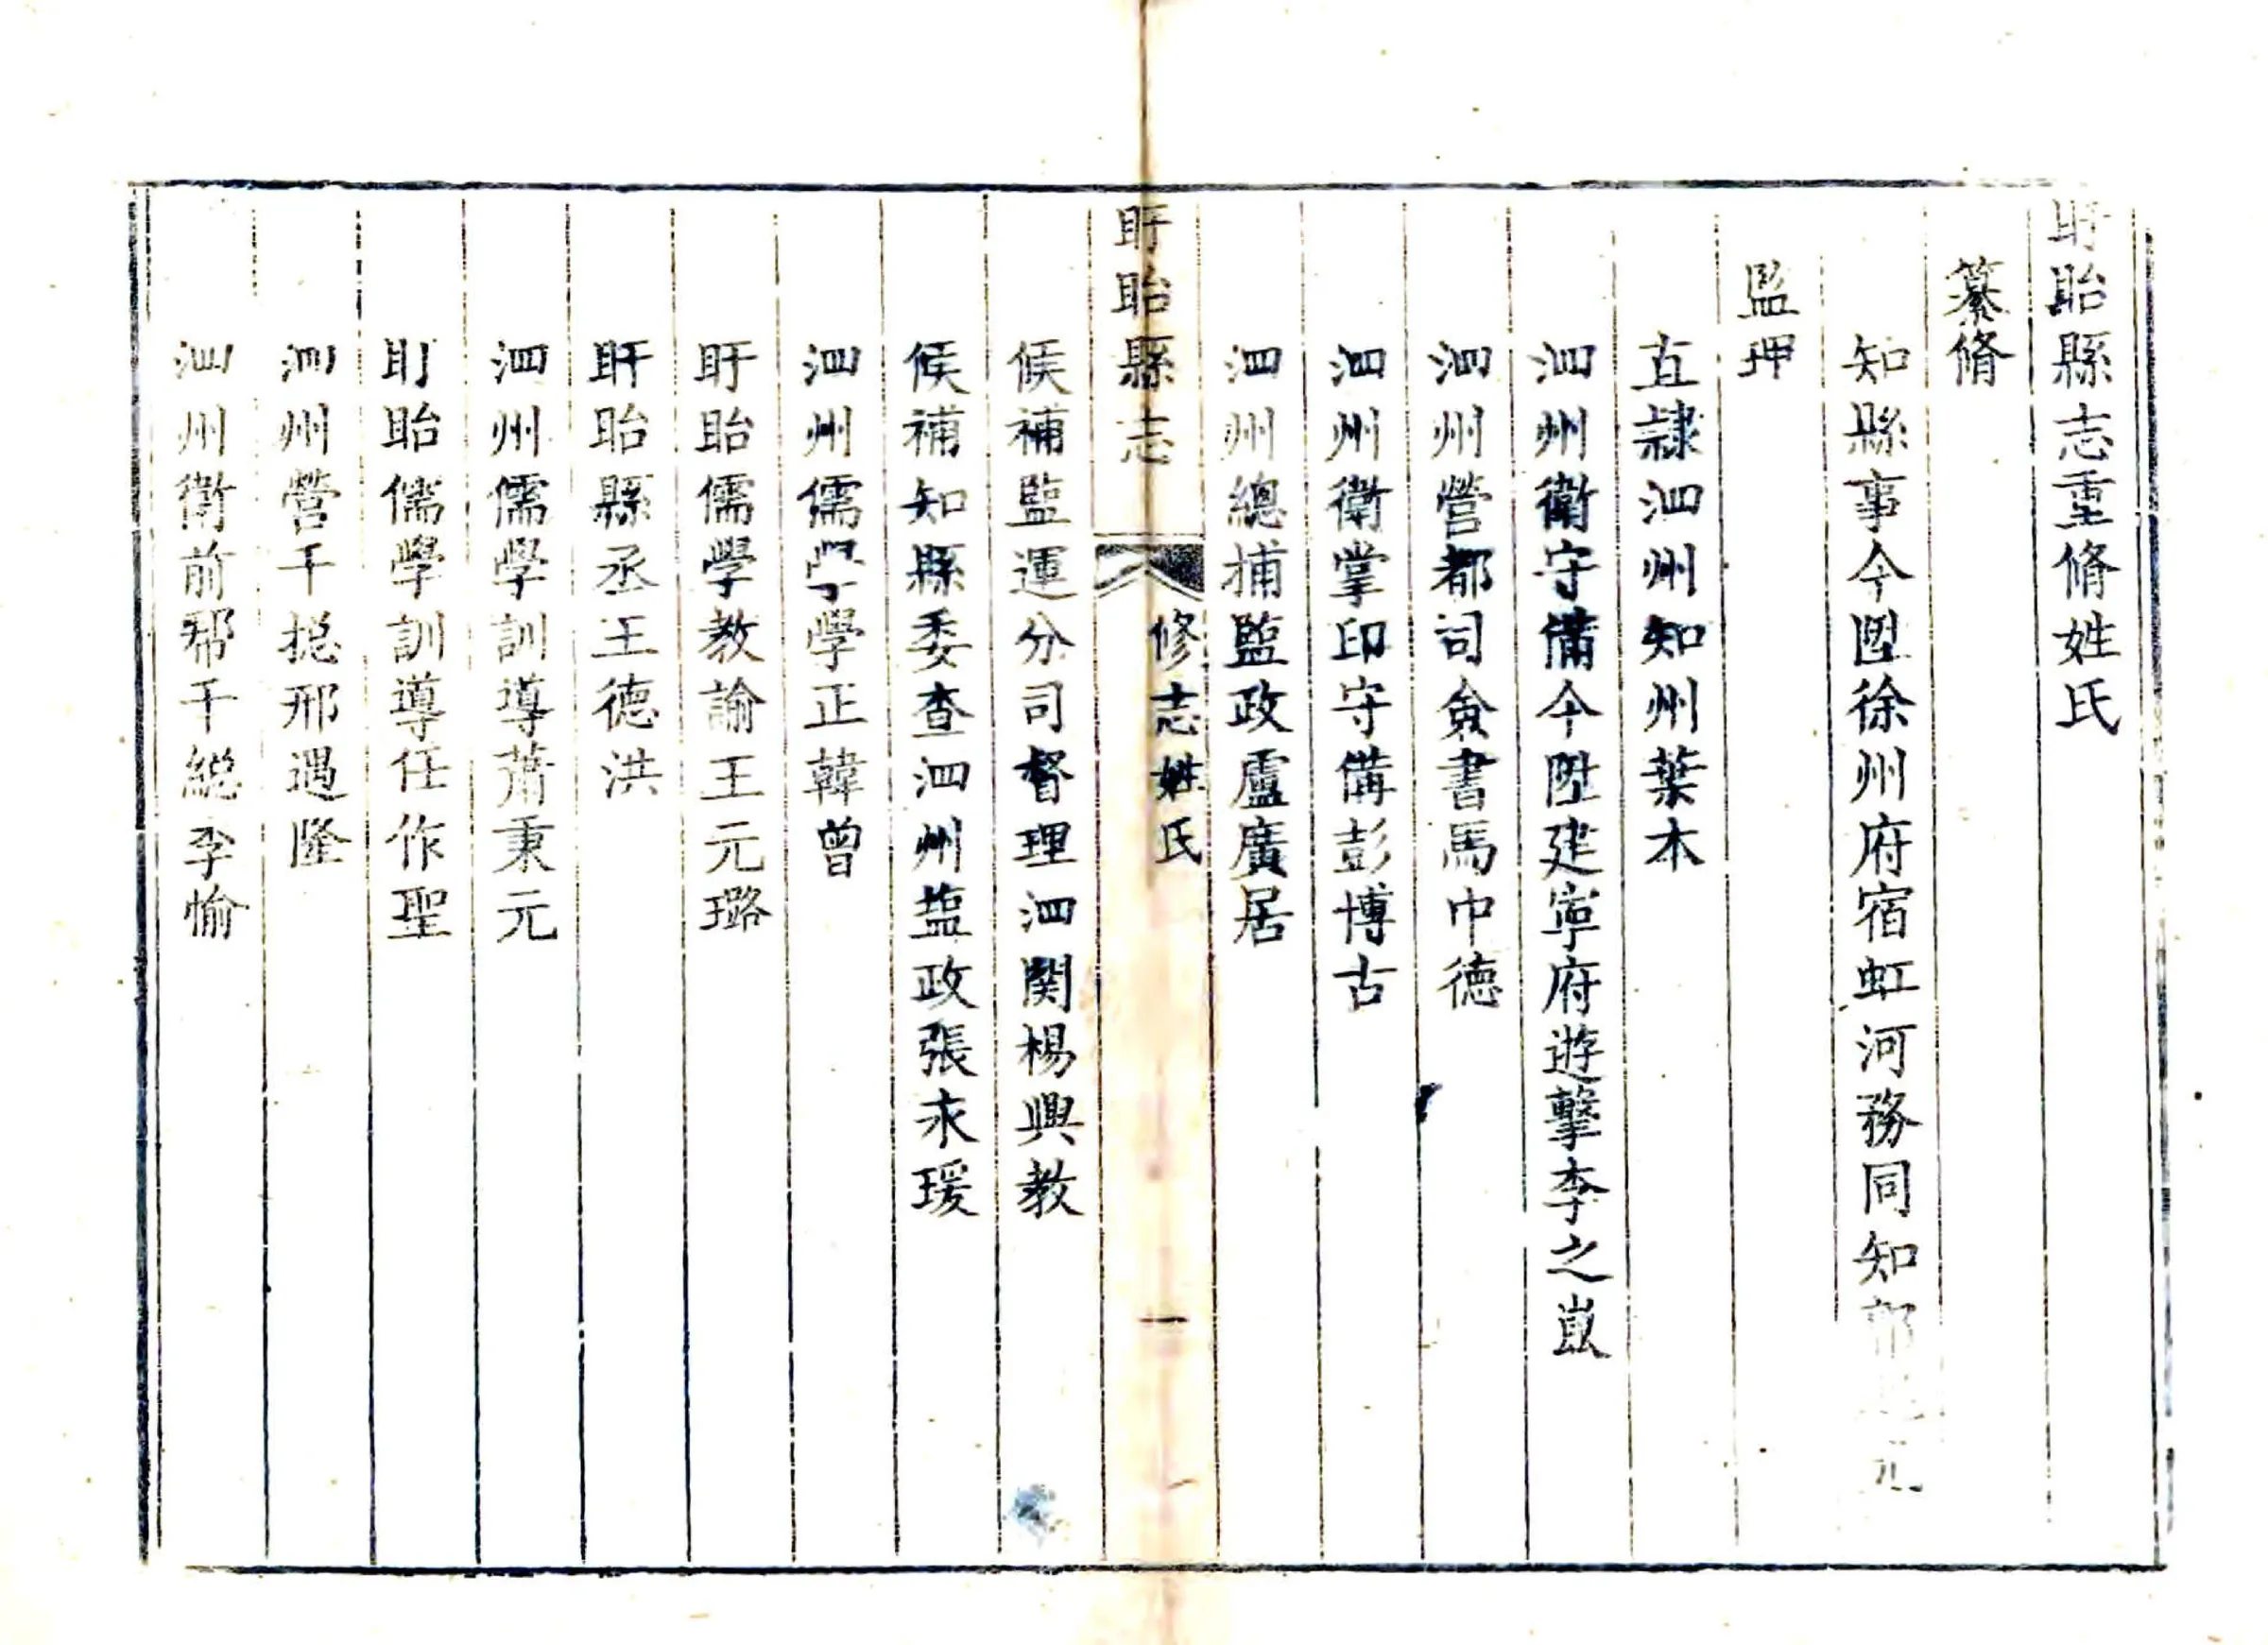 盱眙縣志重脩姓氏
纂脩
知縣事今陞徐州府宿虹河務同知郭起元
監理
直隸泗州知州葉本
泗州衛守備今陞建寧府遊擊李之崑
泗州營都司僉書馬中德
泗州衛掌印守備彭博古
泗州總捕監政盧廣居
盱眙縣志
修志姓氏
一
候補監運分司督理泗関楊興教
候補知縣委查泗州塩政張永瑗
泗州儒學學正韓曾
盱眙儒學教諭王元璐
盱眙縣丞王德洪
泗州儒學訓導蕭秉元
盱眙儒學訓導任作聖
泗州營千捴邢遇隆
泗州衛前帮千総李愉